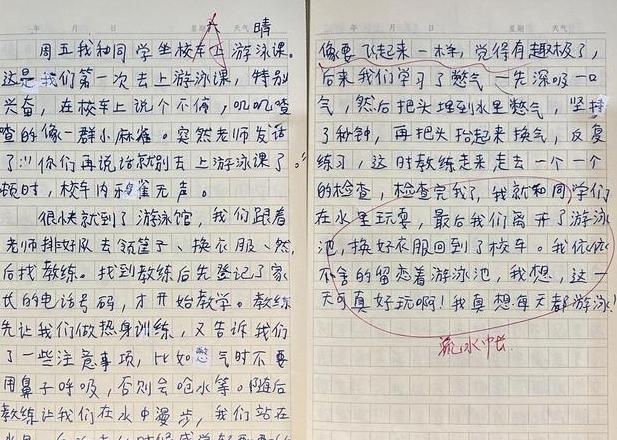 年 月 日 星期六 天气 晴
周五我和同学坐校车上游泳课。
这是我们第一次去上游泳课，特别
兴奋，在校车上说个不停，叽叽喳
喳的像一群小麻雀。突然老师发话
了："你们再说话就别去上游泳课了。"
顿时，校车内鸦雀无声。
很快就到了游泳馆，我们跟着
老师排好队去领筐子、换衣服、然
后找教练。找到教练后先登记了家
长的电话号码，才开始教学。教练
先让我们做热身训练，又告诉我们
了一些注意事项，比如憋气时不要
用鼻子呼吸，否则会呛水等。随后
教练让我们在水中漫步，我们站在
年 月 日 星期 天气
像要飞起来一样，觉得有趣极了，
后来我们学习了憋气——先深吸一口
气，然后把头埋到水里憋气，坚持
了秒钟，再把头抬起来换气，反复
练习，这时教练走来走去一个一个
的检查，检查完我了，我就和同学们
在水里玩耍，最后我们离开了游泳
池，换好衣服回到了校车。我依依
不舍的留恋着游泳池，我想，这一
天可真好玩啊！我真想每天都游泳！
流水帐